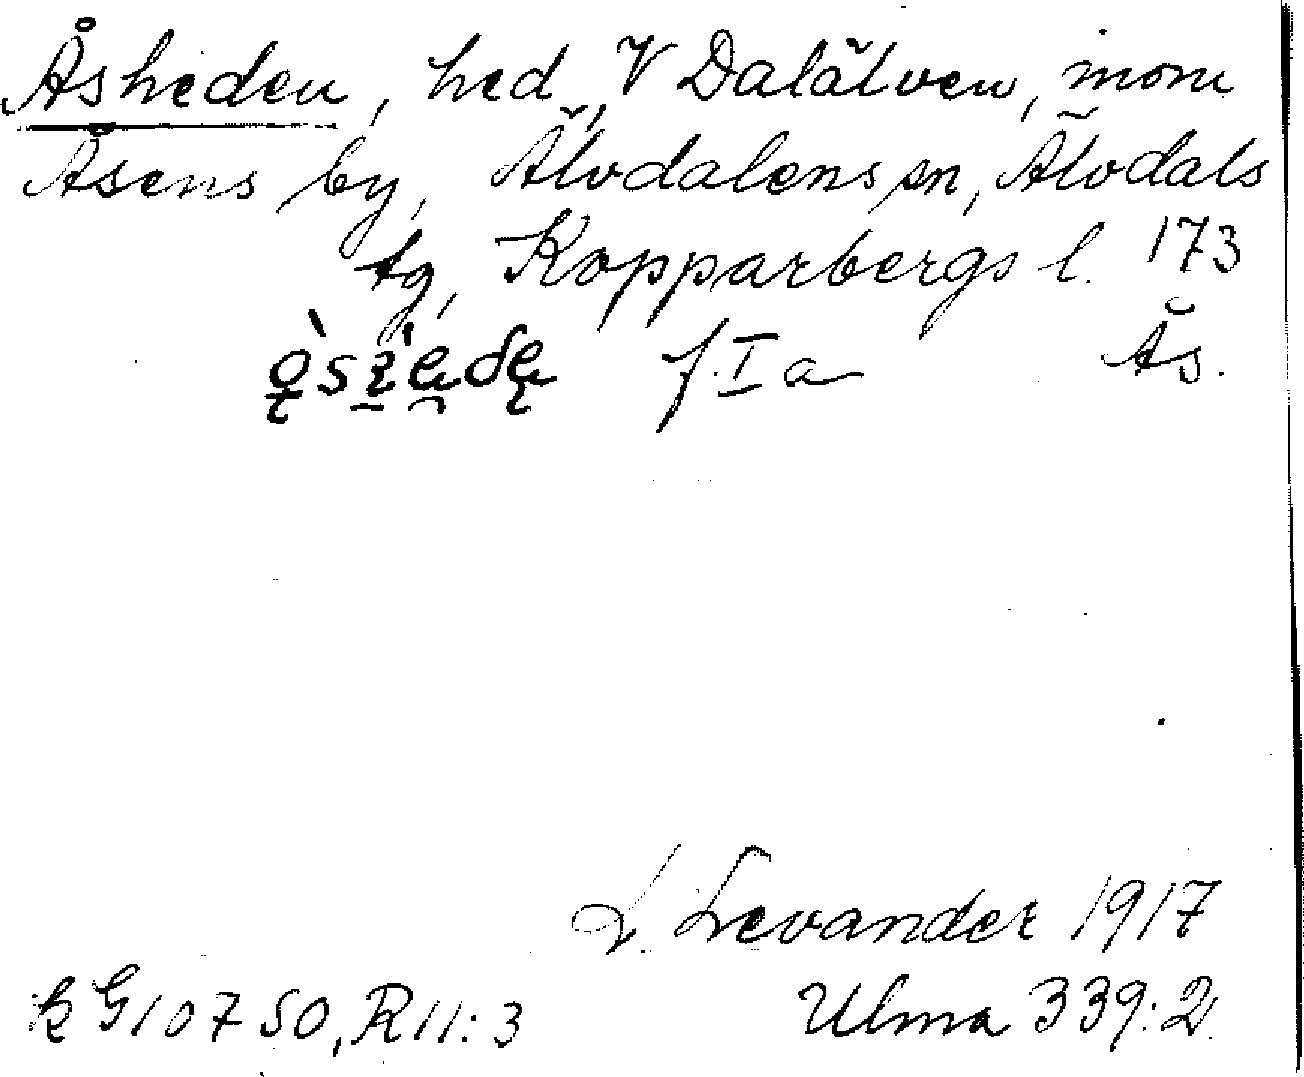 Åsheden, hed, V Dalälven, inom
Åsens by, Älvdalens sn, Älvdals
tg, Kopparbergs l. 173
f. I a Ås.
L. Levander 1917
k G10750, R11:3 Ulma 339:2.